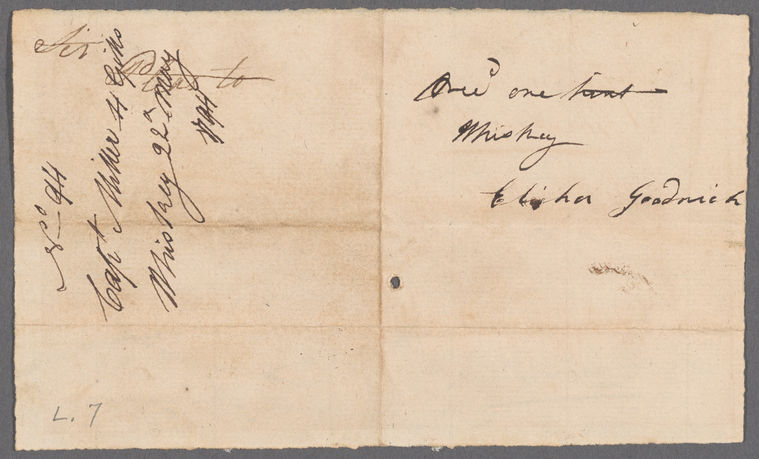 Sir
Pleas to
No 94
Capt Miller 4 Gills
Whiskey 22d May
1794
Recd one Pint
Whiskey
Elisher Goodrich
L. 7